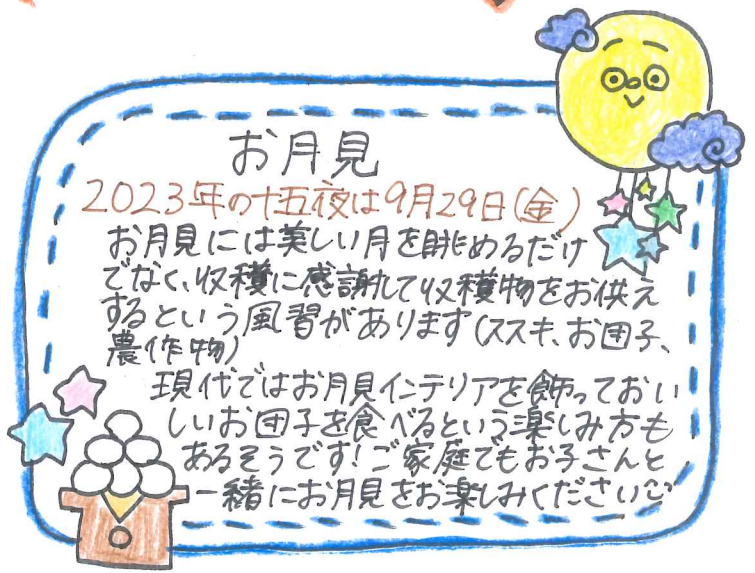 お月見
2023年の十五夜は9月29日(金)
お月見には美しい月を眺めるだけ
でなく、収穫に感謝して収穫物をお供え
するという風習があります(ススキ、お団子、
農作物)
現代ではお月見インテリアを飾っておい
しいお団子を食べるという楽しみ方も
あるそうです!ご家庭でもお子さんと
一緒にお月見をお楽しみください